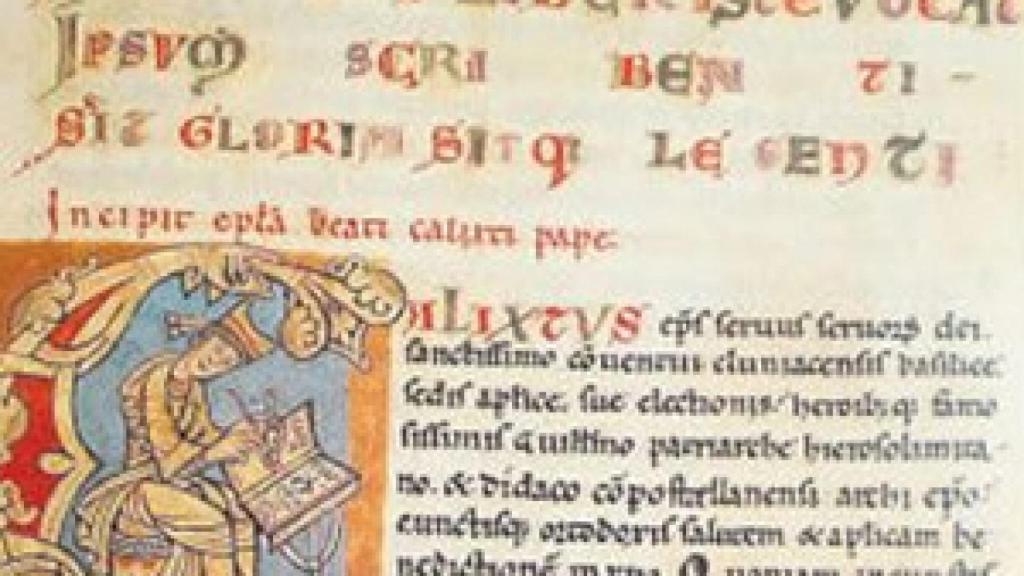 IPSVM SCRI BEN TI -
SIT GLORIA SITQ LE GENTI
Incipit epła beati calixti pape.
ALIXTVS ep̄s seruus seruoꝝ dei.
sanctissimo cōuentui cluniacensis basilice.
sedis aplice. sue electionis, heroibusq; famo
sissimis Guillmo patriarche hierosolimita-
no. & didaco cōpostellanensi archi ep̄o.
cunctisq; ortodoxis salutem & aplicam be-
nedictionē in xp̄o. Quoniam in cunctis